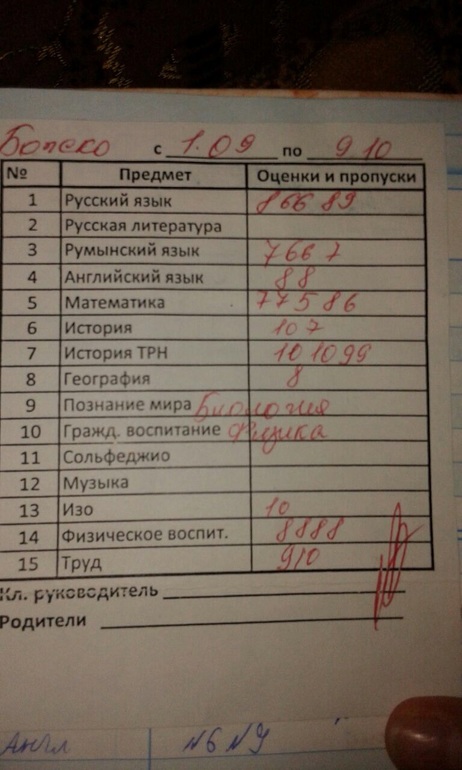 Бопеко с 1.09 по 9.10
№ Предмет Оценки и пропуски
1 Русский язык 86689
2 Русская литература
3 Румынский язык 7667
4 Английский язык 88
5 Математика 77586
6 История 107
7 История ТРН 101099
8 География 8
9 Познание мира Биология
10 Гражд. воспитание Физика
11 Сольфеджио
12 Музыка
13 Изо 10
14 Физическое воспит. 8888
15 Труд 910
Кл. руководитель
Родители
Англ №6 №9